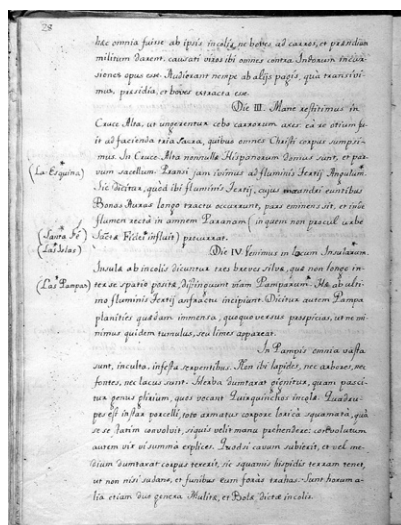 28
hæc omnia fuisse ab ipsis incolis, ne boves ad carros, et præsidium
militum darent, causati viros ibi omnes contra Indorum incur-
siones opus esse. Audierant nempe ab alijs pagis, quà transivi-
mus, præsidia, et boves extracta esse.
Die III. Mane restitimus in
Cruce Alta, ut ungerentur sebo carrorum axes: eâ re otium fu-
it ad facienda tria sacra, quibus omnes Christi corpus sumpsi-
mus. In Cruce Alta nonnullæ Hispanorum domus sunt, et par-
vum sacellum. Pransi jam ivimus ad fluminis Tertij Angulum.
(La Esquina)
Sic dicitur, quòd ibi fluminis Tertij, cujus mæandri euntibus
Bonas Auras longo tractu occurrunt, pars eminens sit, et inde
flumen rectà in amnem Paranam (in quem non procul urbe
(Santa Fè)
Sactæ Fidei influit) procurrat.
(Las Islas)
Die IV. Venimus in locum Insularum.
Insulæ ab incolis dicuntur tres breves silvæ, quæ non longo in-
(Las Pampas)
ter se spatio positæ, distinguunt viam Pamparum. Hæ ab ulti-
mo fluminis Tertij anfractu incipiunt. Dicitur autem Pampa
planities quædam immensa, quoquoversus prospicias, ut ne mi-
nimus quidem tumulus, seu limes appareat.
In Pampis omnia vasta
sunt, inculta, infesta serpentibus. Non ibi lapides, nec arbores, nec
fontes, nec lacus sunt. Herba dumtaxat gignitur, quam pasci-
tur genus plurium, quos vocant Quirquinchos incolæ. Quadru-
pes est instar porcelli, toto armatus corpore loricâ squamatâ, quâ
se se statim convolvit, siquis velit manu prehendere: convolutum
autem vix vi summâ explices. Quodsi cavum subierit, et vel me-
dium dumtaxat corpus texerit, sic squamis hispidis terram tenet,
ut non nisi sudans, et funibus eum foràs trahas. Sunt horum a-
lia etiam duo genera Mulitæ, et Bolæ dictæ incolis.